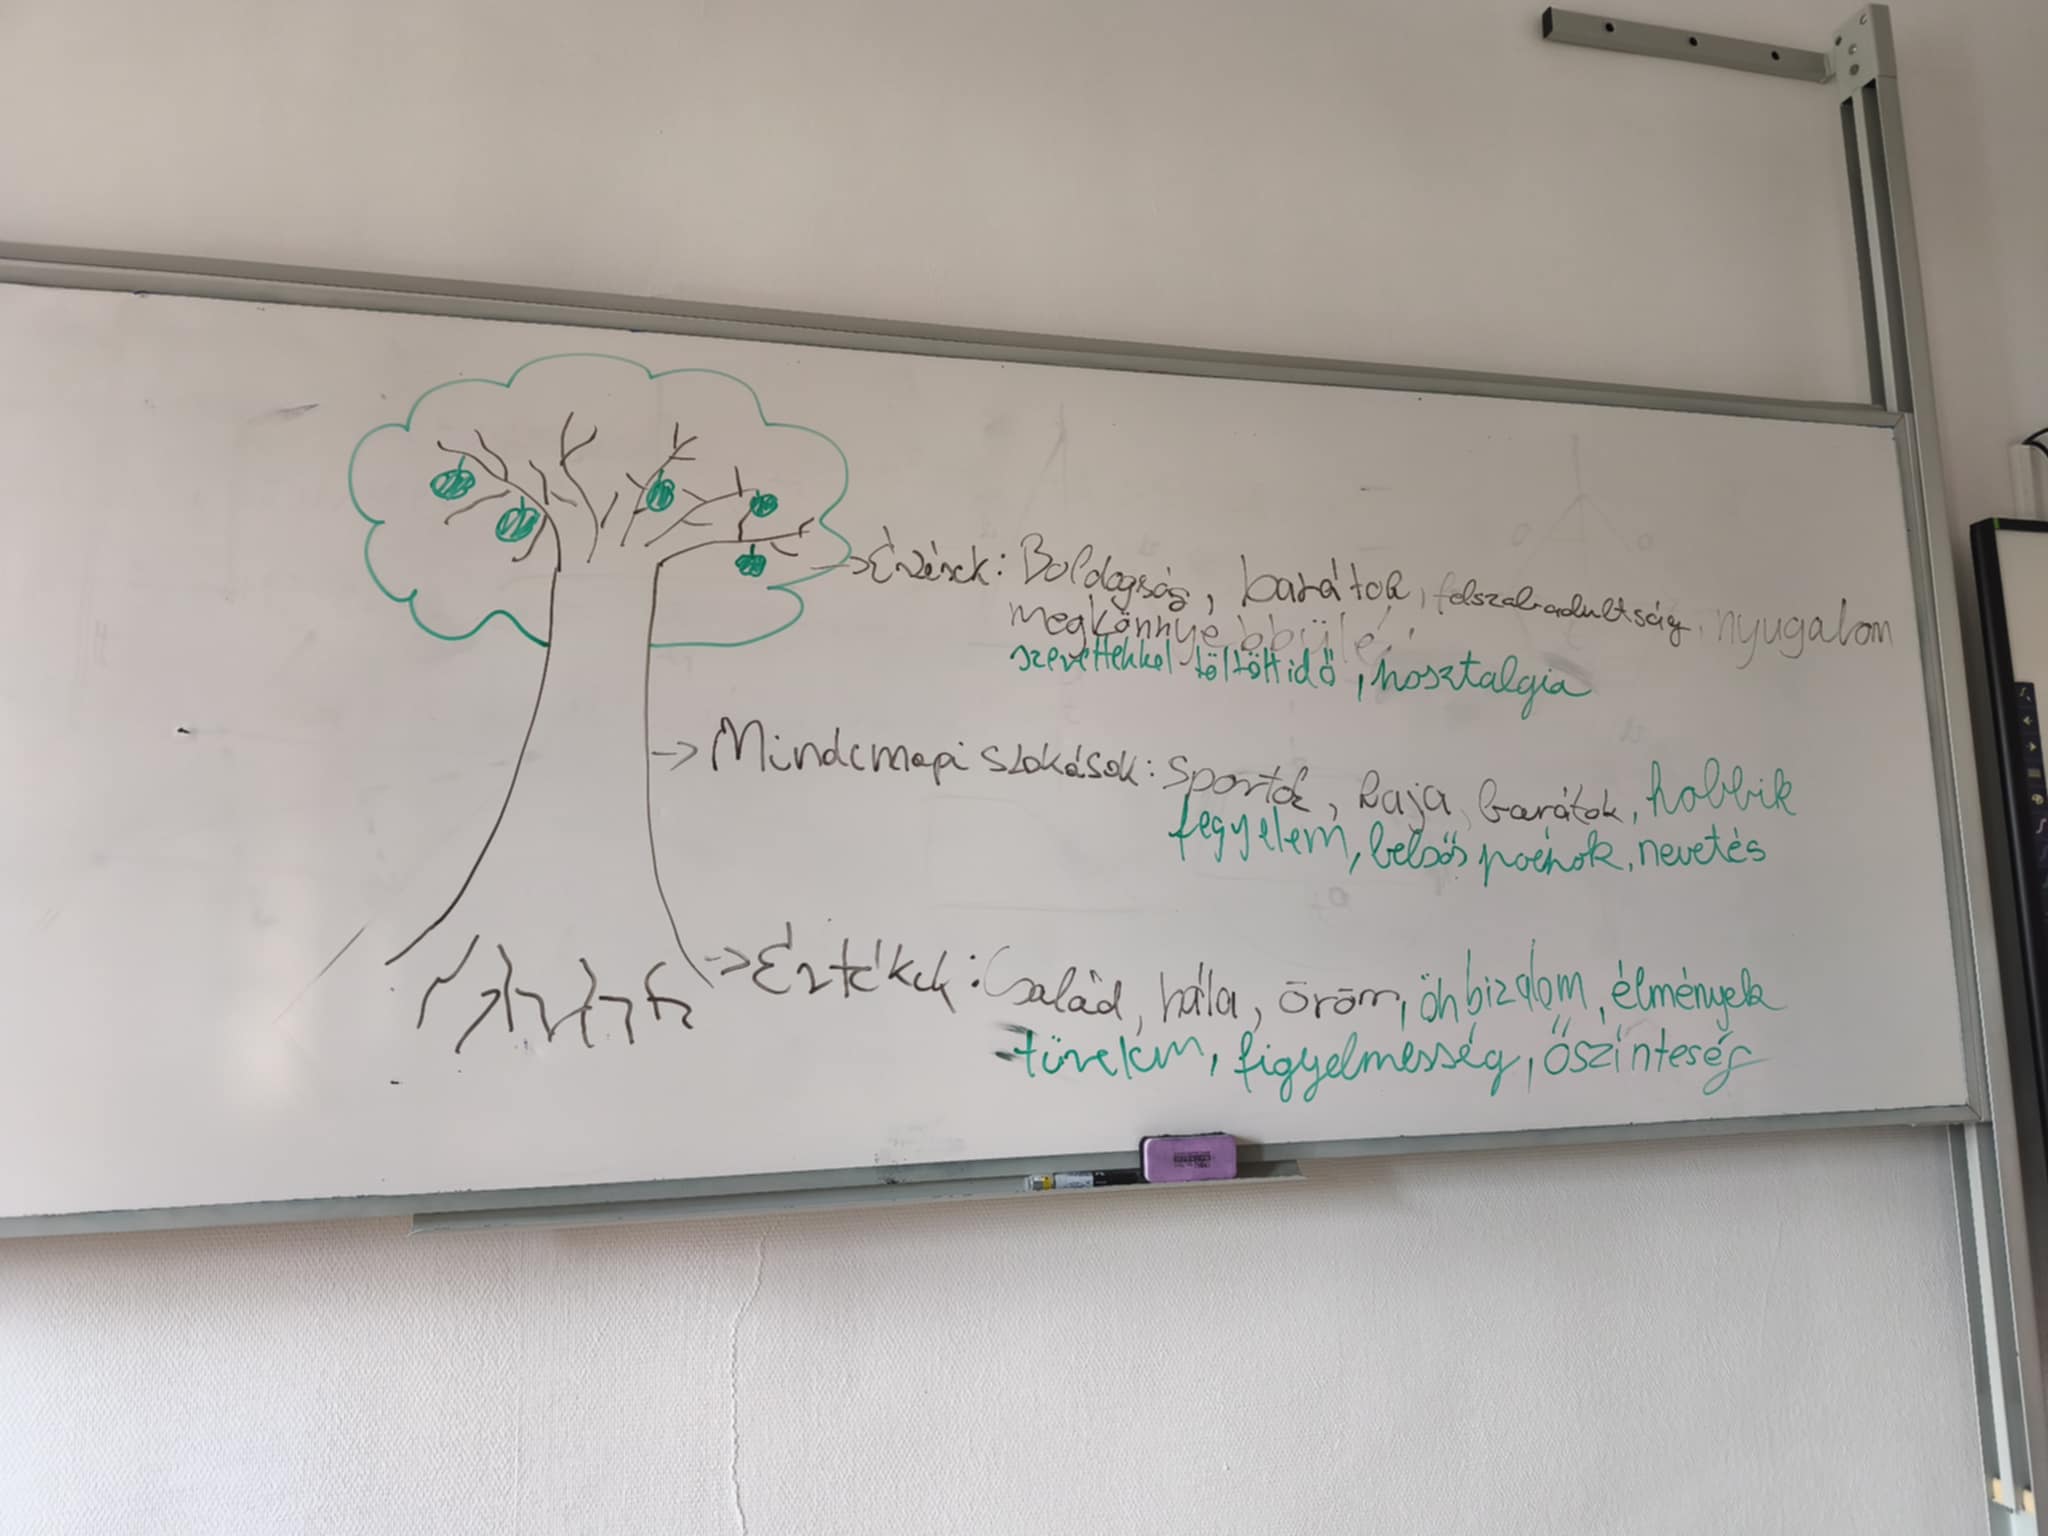 Érzések: Boldogság, barátok, felszabadultság, nyugalom
megkönnyebbülé,
szerettekkel töltött idő, nosztalgia
Mindennapi szokások: sportok, kaja, barátok, hobbik
fegyelem, belsős poénok, nevetés
Értékek: Család, hála, öröm, önbizalom, élmények
türelem, figyelmesség, őszinteség